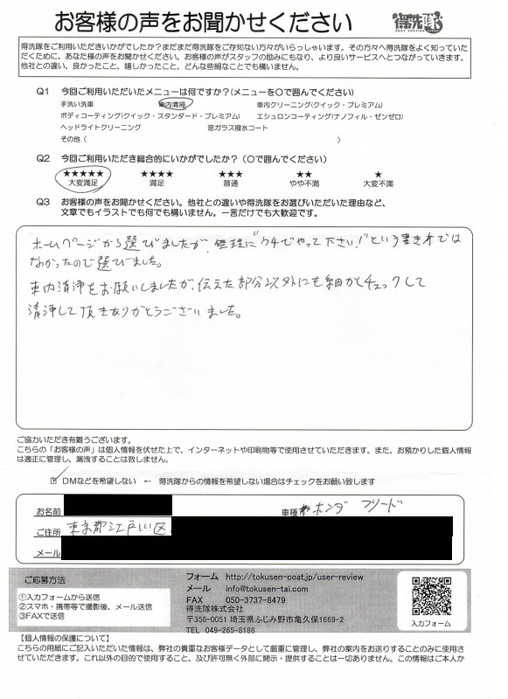 お客様の声をお聞かせください
得洗隊
得洗隊をご利用いただきいかがでしたか?まだまだ得洗隊をご存知ない方々がいらっしゃいます。その方々へ得洗隊をよく知っていた
だくために、あなた様の声をお聞かせください。お客様の声がスタッフの励みにもなり、より良いサービスへとつながっていきます。
他社との違い、良かったこと、嬉しかったこと、どんな些細なことでも構いません。
Q1 今回ご利用いただいたメニューは何ですか?(メニューを〇で囲んでください)
手洗い洗車 車内清掃 車内クリーニング(クイック・プレミアム)
ボディコーティング(クイック・スタンダード・プレミアム) エシュロンコーティング(ナノフィル・ゼンゼロ)
ヘッドライトクリーニング 窓ガラス撥水コート
その他( )
Q2 今回ご利用いただき総合的にいかがでしたか?(〇で囲んでください)
★★★★★ ★★★★ ★★★ ★★ ★
大変満足 満足 普通 やや不満 大変不満
Q3 お客様の声をお聞かせください。他社との違いや得洗隊をお選びいただいた理由など、
文章でもイラストでも何でも構いません。一言だけでも大歓迎です。
ホームページから選びましたが、無理に"〇〇でやって下さい!"という書き方では
なかったので選びました。
車内清浄をお願いしましたが、伝えた部分以外にも細かくチェックして
清浄して頂きありがとうございました。
ご協力いただき有難うございます。
こちらの「お客様の声」は個人情報を伏せた上で、インターネットや印刷物等で使用させていただきます。また、お預かりした個人情報
は適正に管理し、漏洩することは致しません。
DMなどを希望しない ← 得洗隊からの情報を希望しない場合はチェックをお願い致します
お名前
車種 ホンダ フリード
ご住所 東京都江戸川区
メール
ご応募方法
①入力フォームから送信
②スマホ・携帯等で撮影後、メール送信
③FAXで送信
フォーム http://tokusen-coat.jp/user-review
メール info@tokusen-tai.com
FAX 050-3737-8479
得洗隊株式会社
〒356-0051 埼玉県ふじみ野市亀久保1669-2
TEL 049-265-8186
入力フォーム
【個人情報の保護について】
こちらの用紙にご記入いただいた情報は、弊社の貴重なお客様データとして厳重に管理し、弊社の案内をお送りすることのみに使用さ
せていただきます。これ以外の目的で使用すること、及び許可無く外部に開示・提供することは一切ありません。この情報はご本人か